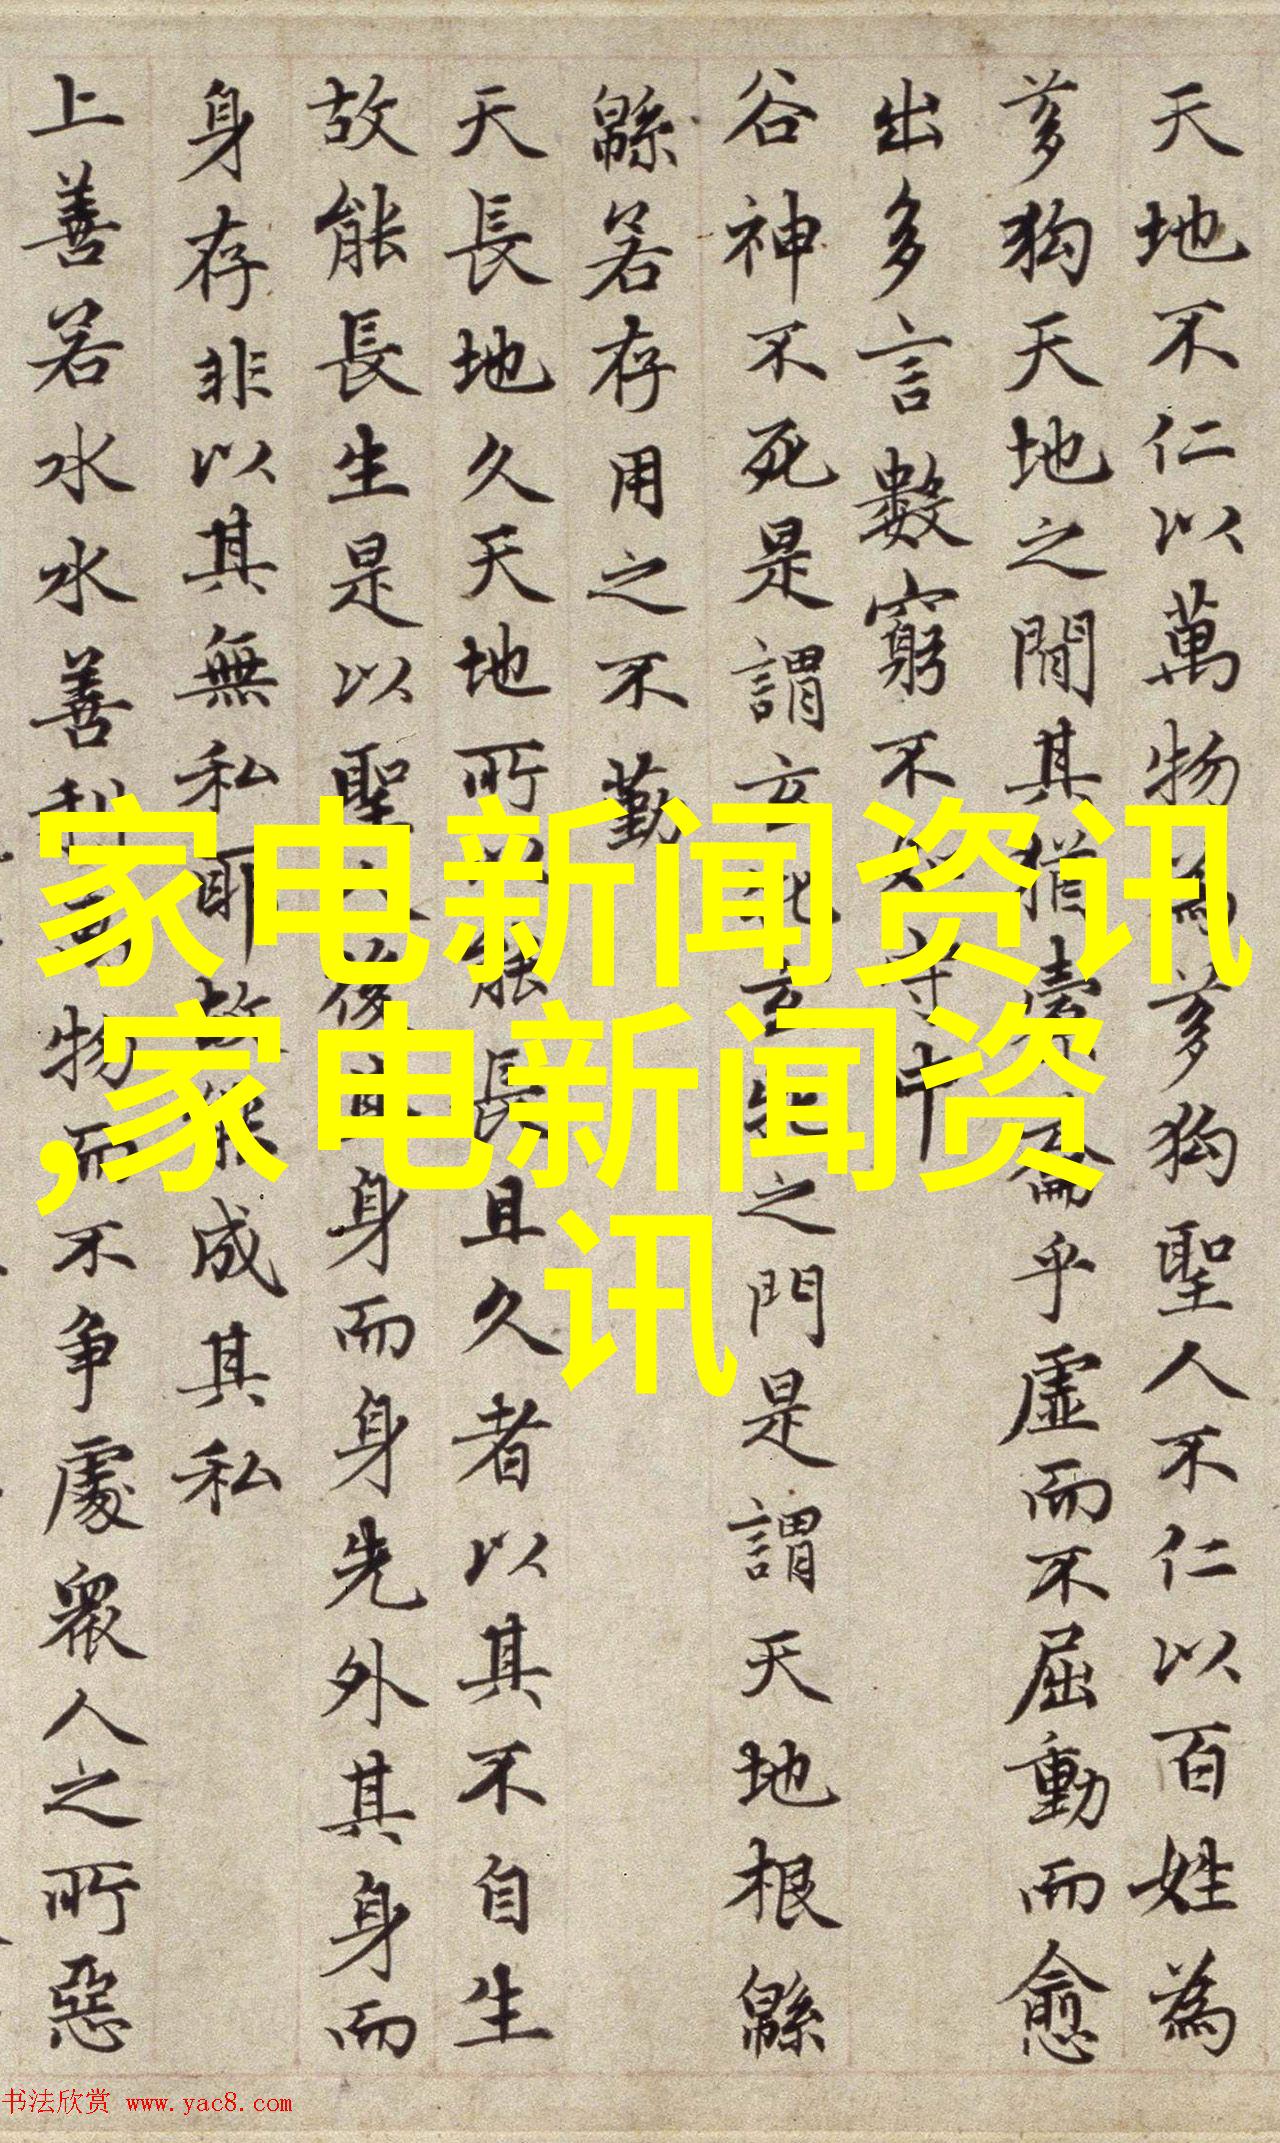 天地不仁以萬物為芻狗聖人不仁以百姓為
芻狗天地之閒其猶橐籥乎虛而不屈動而愈
出多言數窮不如守中
谷神不死是謂玄牝玄牝之門是謂天地根緜
緜若存用之不勤
天長地久天地所以能長且久者以其不自生
故能長生是以聖人後其身而身先外其身而
身存非以其無私耶故能成其私
上善若水水善利萬物而不争處衆人之所惡
家电新闻资讯
,家电新闻资
讯
书法欣赏 www.yac8.com